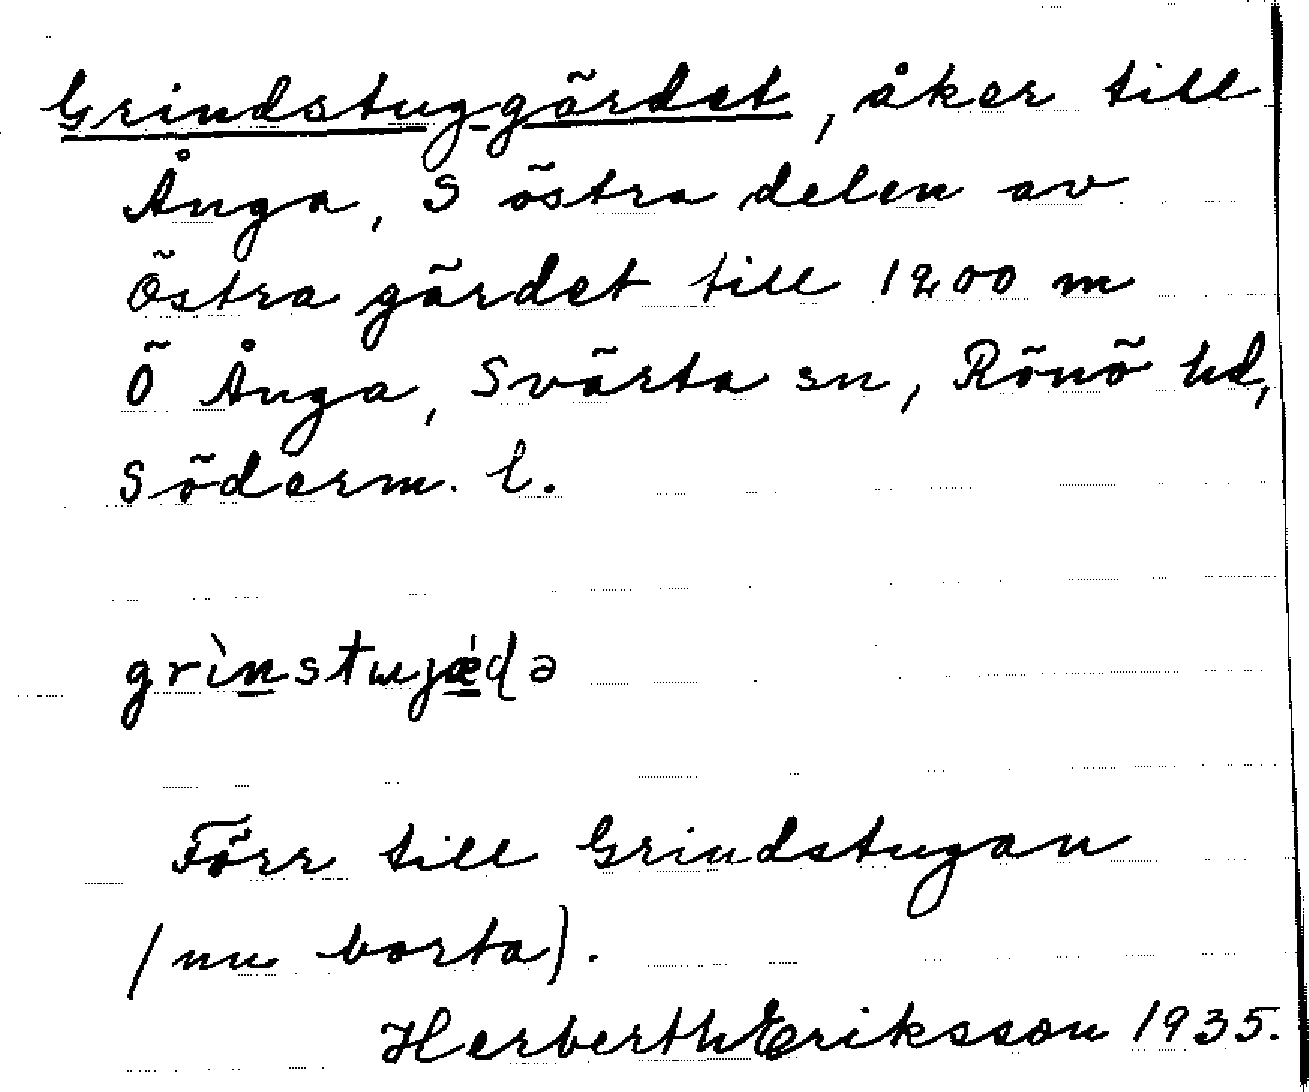 Grindstuggärdet, åker till
Ånga, S östra delen av
Östra gärdet till 1200 m
Ö Ånga, Svärta sn, Rönö hd,
Söderm. l.
grìnstɯjǽḍə
Förr till Grindstugan
(nu borta).
Herberth Eriksson 1935.